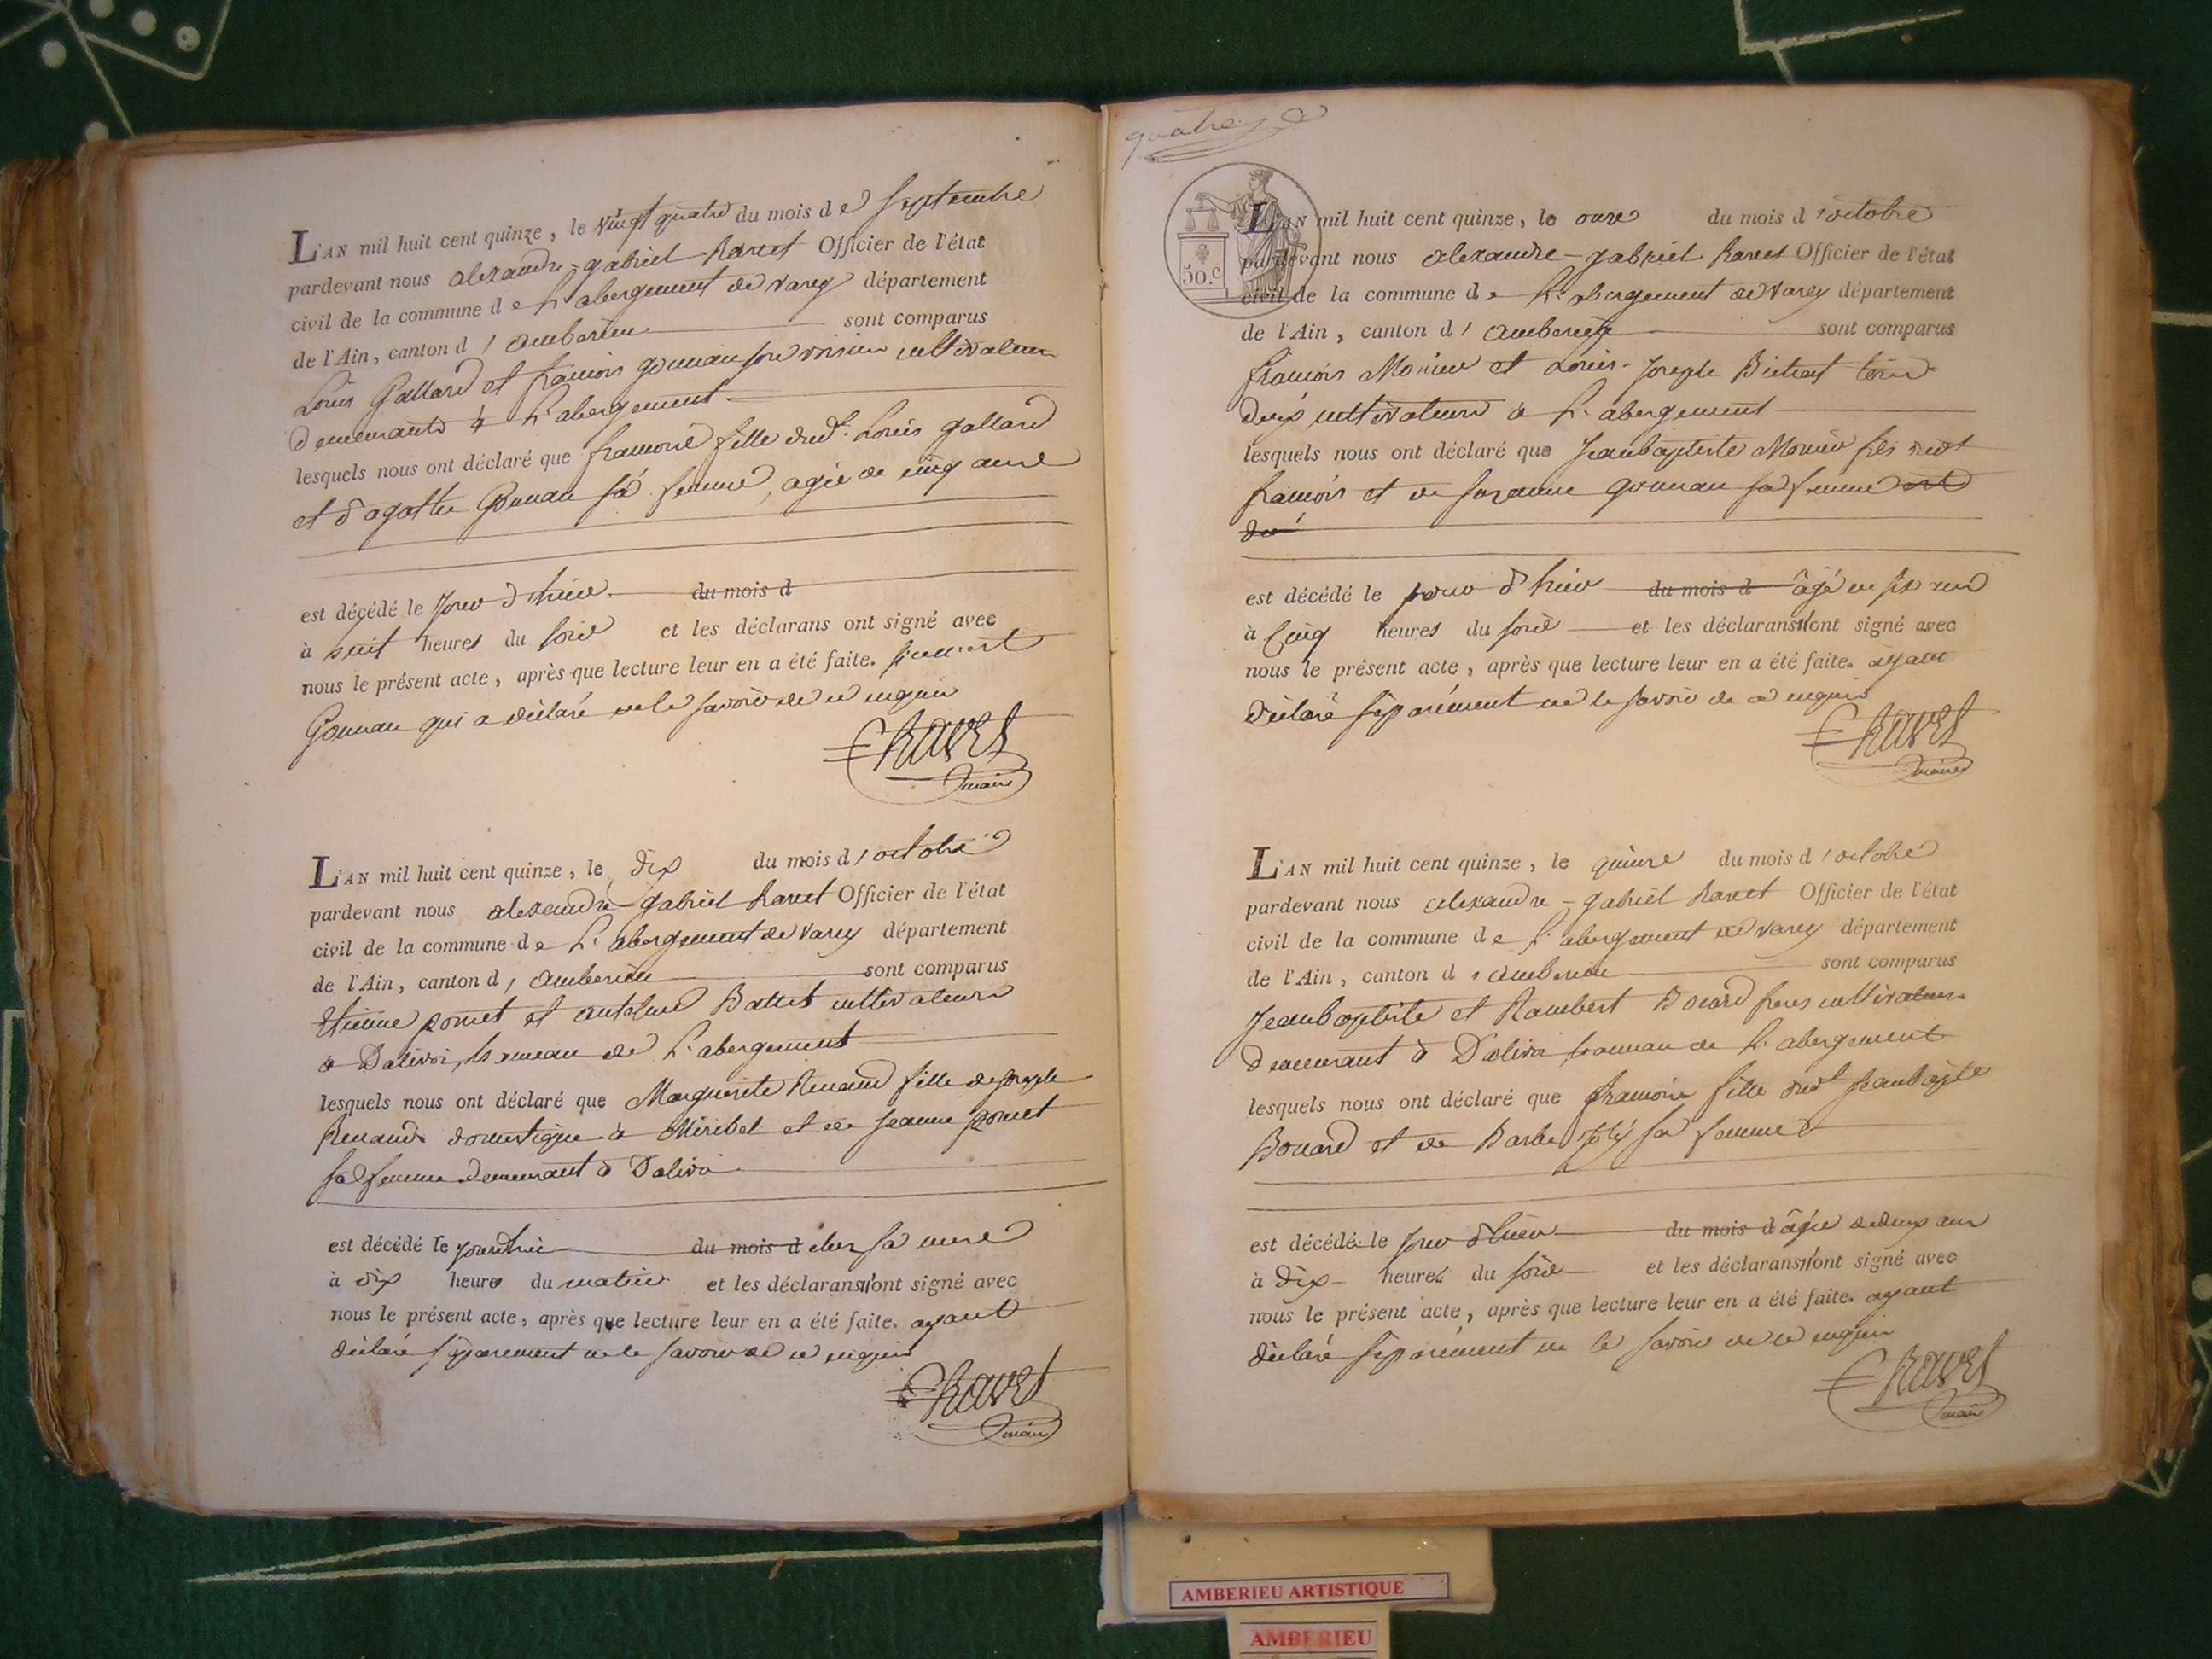 L'AN mil huit cent quinze, le vingt quatre du mois de Septembre
pardevant nous alexandre-gabriel Ravet Officier de l'état
civil de la commune de L'abergement de varey département
de l'Ain, canton d'amberieu sont comparus
Louis Gallard et francois gounau son voisin cultivateurs
demeurants à L'abergement
lesquels nous ont déclaré que francoise fille dudt. Louis gallard
et d'agathe Gounau sa femme, agée de cinq ans
est décédé le jour d'hier du mois d
à huit heures du soir et les déclarans ont signé avec
nous le présent acte, après que lecture leur en a été faite.
Gounau qui a déclaré ne le savoir de ce enquis
Ravet
maire
L'AN mil huit cent quinze, le dix du mois d'octobre
pardevant nous alexandre-gabriel Ravet Officier de l'état
civil de la commune de L'abergement de varey département
de l'Ain, canton d'amberieu sont comparus
Etienne pomet et antoine Battet cultivateurs
à Dalivoi, hameau de L'abergement
lesquels nous ont déclaré que Marguerite Renaud fille de joseph
Renaud domestique à Miribel et de jeanne pomet
sa femme demeurant à Dalivoi
est décédé le jourdhui du mois d chez sa mere
à dix heures du matin et les déclarans n'ont signé avec
nous le présent acte, après que lecture leur en a été faite. ayant
déclaré séparement ne le savoir de ce enquis
Ravet
maire
quatre
50.c
L'AN mil huit cent quinze, le onze du mois d'octobre
pardevant nous alexandre-gabriel Ravet Officier de l'état
civil de la commune de L'abergement de varey département
de l'Ain, canton d'amberieu sont comparus
francois Monier et Louis-Joseph Bietrat tous
deux cultivateurs à L'abergement
lesquels nous ont déclaré que Jeanbaptiste Monier fils dudt
francois et de suzanne gounau sa femme
est décédé le jour d'hier du mois d âgé de six ans
à cinq heures du soir et les déclarans n'ont signé avec
nous le présent acte, après que lecture leur en a été faite. ayant
déclaré séparément ne le savoir de ce enquis
Ravet
maire
L'AN mil huit cent quinze, le quinze du mois d'octobre
pardevant nous alexandre-gabriel Ravet Officier de l'état
civil de la commune de L'abergement de varey département
de l'Ain, canton d'amberieu sont comparus
Jeanbaptiste et Rambert Bouard freres cultivateurs
demeurant à Dalivoi hameau de L'abergement
lesquels nous ont déclaré que francoise fille dudt jeanbapte
Bouard et de Barbe joly sa femme
est décédé le jour d'hier du mois d âgée de deux ans
à dix heures du soir et les déclarans n'ont signé avec
nous le présent acte, après que lecture leur en a été faite. ayant
déclaré séparément ne le savoir de ce enquis
Ravet
maire
AMBERIEU ARTISTIQUE
AMBERIEU